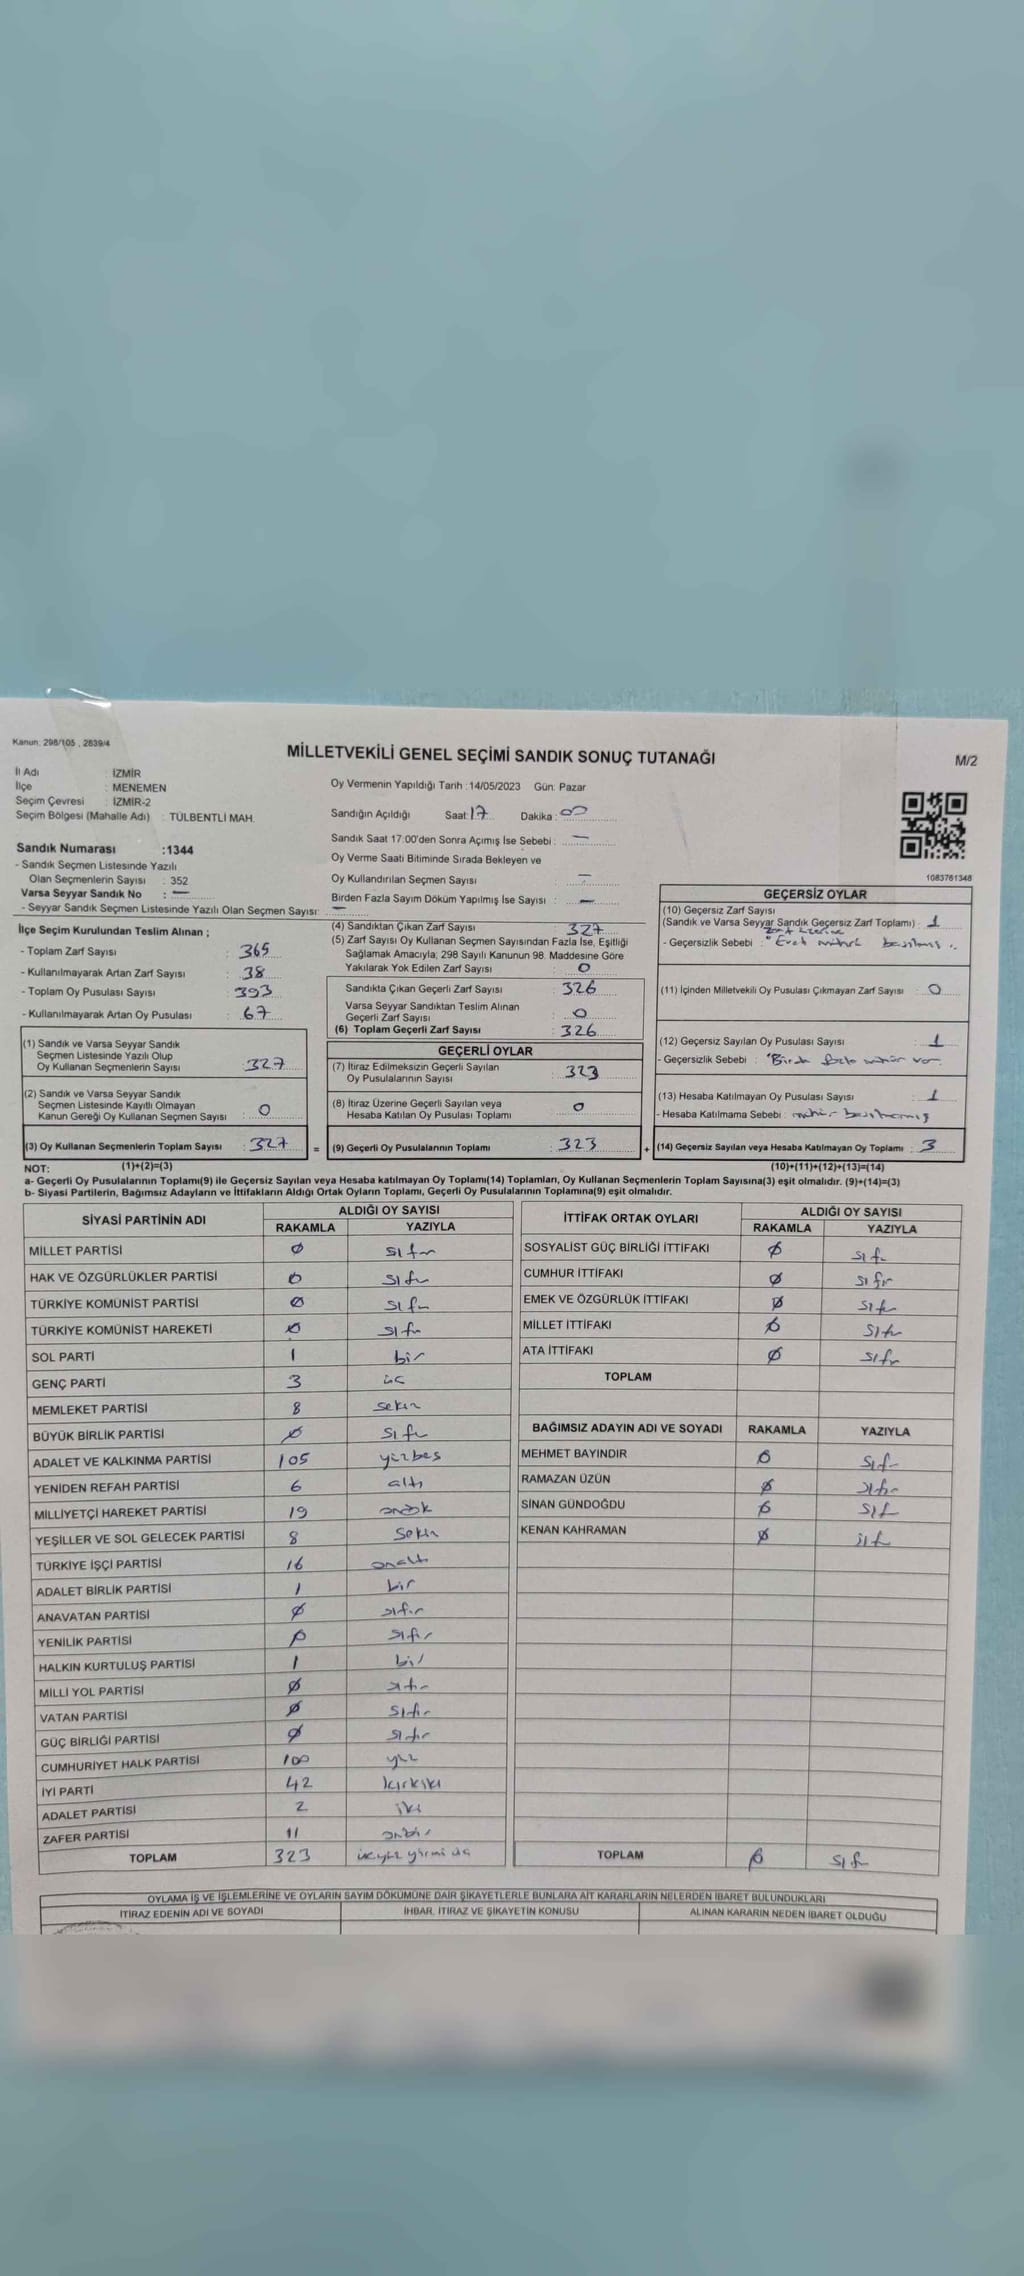 Kanun: 298/105 , 2839/4
MİLLETVEKİLİ GENEL SEÇİMİ SANDIK SONUÇ TUTANAĞI
M/2
İl Adı : İZMİR
İlçe : MENEMEN
Seçim Çevresi : İZMİR-2
Seçim Bölgesi (Mahalle Adı) : TÜLBENTLİ MAH.
Oy Vermenin Yapıldığı Tarih :14/05/2023 Gün: Pazar
Sandığın Açıldığı Saat:17 Dakika :
Sandık Saat 17:00'den Sonra Açımış İse Sebebi : —
Oy Verme Saati Bitiminde Sırada Bekleyen ve
Oy Kullandırılan Seçmen Sayısı : —
Birden Fazla Sayım Döküm Yapılmış İse Sayısı : —
1083761348
Sandık Numarası :1344
- Sandık Seçmen Listesinde Yazılı
Olan Seçmenlerin Sayısı : 352
Varsa Seyyar Sandık No : —
- Seyyar Sandık Seçmen Listesinde Yazılı Olan Seçmen Sayısı: —
İlçe Seçim Kurulundan Teslim Alınan ;
- Toplam Zarf Sayısı : 365
- Kullanılmayarak Artan Zarf Sayısı : 38
- Toplam Oy Pusulası Sayısı : 393
- Kullanılmayarak Artan Oy Pusulası : 67
(1) Sandık ve Varsa Seyyar Sandık
Seçmen Listesinde Yazılı Olup
Oy Kullanan Seçmenlerin Sayısı : 327
(2) Sandık ve Varsa Seyyar Sandık
Seçmen Listesinde Kayıtlı Olmayan
Kanun Gereği Oy Kullanan Seçmen Sayısı : 0
(3) Oy Kullanan Seçmenlerin Toplam Sayısı : 327 =
(4) Sandıktan Çıkan Zarf Sayısı : 327
(5) Zarf Sayısı Oy Kullanan Seçmen Sayısından Fazla İse, Eşitliği
Sağlamak Amacıyla, 298 Sayılı Kanunun 98. Maddesine Göre
Yakılarak Yok Edilen Zarf Sayısı : 0
Sandıkta Çıkan Geçerli Zarf Sayısı : 326
Varsa Seyyar Sandıktan Teslim Alınan
Geçerli Zarf Sayısı : 0
(6) Toplam Geçerli Zarf Sayısı : 326
GEÇERLİ OYLAR
(7) İtiraz Edilmeksizin Geçerli Sayılan
Oy Pusulalarının Sayısı : 323
(8) İtiraz Üzerine Geçerli Sayılan veya
Hesaba Katılan Oy Pusulası Toplamı : 0
(9) Geçerli Oy Pusulalarının Toplamı : 323 +
GEÇERSİZ OYLAR
(10) Geçersiz Zarf Sayısı
(Sandık ve Varsa Seyyar Sandık Geçersiz Zarf Toplamı) : 1
zarf üzerine
- Geçersizlik Sebebi : "Evet mührü basılmış
(11) İçinden Milletvekili Oy Pusulası Çıkmayan Zarf Sayısı : 0
(12) Geçersiz Sayılan Oy Pusulası Sayısı : 1
- Geçersizlik Sebebi : "Birden fazla mühür var.
(13) Hesaba Katılmayan Oy Pusulası Sayısı : 1
- Hesaba Katılmama Sebebi : mühür basılmamış
(14) Geçersiz Sayılan veya Hesaba Katılmayan Oy Toplamı : 3
NOT: (1)+(2)=(3) (10)+(11)+(12)+(13)=(14)
a- Geçerli Oy Pusulalarının Toplamı(9) ile Geçersiz Sayılan veya Hesaba katılmayan Oy Toplamı(14) Toplamları, Oy Kullanan Seçmenlerin Toplam Sayısına(3) eşit olmalıdır. (9)+(14)=(3)
b- Siyasi Partilerin, Bağımsız Adayların ve İttifakların Aldığı Ortak Oyların Toplamı, Geçerli Oy Pusulalarının Toplamına(9) eşit olmalıdır.
SİYASİ PARTİNİN ADI ALDIĞI OY SAYISI
RAKAMLA YAZIYLA
MİLLET PARTİSİ 0 sıfır
HAK VE ÖZGÜRLÜKLER PARTİSİ 0 sıfır
TÜRKİYE KOMÜNİST PARTİSİ 0 sıfır
TÜRKİYE KOMÜNİST HAREKETİ 0 sıfır
SOL PARTİ 1 bir
GENÇ PARTİ 3 üç
MEMLEKET PARTİSİ 8 sekiz
BÜYÜK BİRLİK PARTİSİ 0 sıfır
ADALET VE KALKINMA PARTİSİ 105 yüzbeş
YENİDEN REFAH PARTİSİ 6 altı
MİLLİYETÇİ HAREKET PARTİSİ 19 ondok
YEŞİLLER VE SOL GELECEK PARTİSİ 8 sekiz
TÜRKİYE İŞÇİ PARTİSİ 16 onaltı
ADALET BİRLİK PARTİSİ 1 bir
ANAVATAN PARTİSİ 0 sıfır
YENİLİK PARTİSİ 0 sıfır
HALKIN KURTULUŞ PARTİSİ 1 bir
MİLLİ YOL PARTİSİ 0 sıfır
VATAN PARTİSİ 0 sıfır
GÜÇ BİRLİĞİ PARTİSİ 0 sıfır
CUMHURİYET HALK PARTİSİ 100 yüz
İYİ PARTİ 42 kırkiki
ADALET PARTİSİ 2 iki
ZAFER PARTİSİ 11 onbir
TOPLAM 323 üçyüz yirmi üç
İTTİFAK ORTAK OYLARI ALDIĞI OY SAYISI
RAKAMLA YAZIYLA
SOSYALİST GÜÇ BİRLİĞİ İTTİFAKI 0 sıfır
CUMHUR İTTİFAKI 0 sıfır
EMEK VE ÖZGÜRLÜK İTTİFAKI 0 sıfır
MİLLET İTTİFAKI 0 sıfır
ATA İTTİFAKI 0 sıfır
TOPLAM
BAĞIMSIZ ADAYIN ADI VE SOYADI RAKAMLA YAZIYLA
MEHMET BAYINDIR 0 sıfır
RAMAZAN ÜZÜN 0 sıfır
SİNAN GÜNDOĞDU 0 sıfır
KENAN KAHRAMAN 0 sıfır
TOPLAM 0 sıfır
OYLAMA İŞ VE İŞLEMLERİNE VE OYLARIN SAYIM DÖKÜMÜNE DAİR ŞİKAYETLERLE BUNLARA AİT KARARLARIN NELERDEN İBARET BULUNDUKLARI
İTİRAZ EDENİN ADI VE SOYADI İHBAR, İTİRAZ VE ŞİKAYETİN KONUSU ALINAN KARARIN NEDEN İBARET OLDUĞU